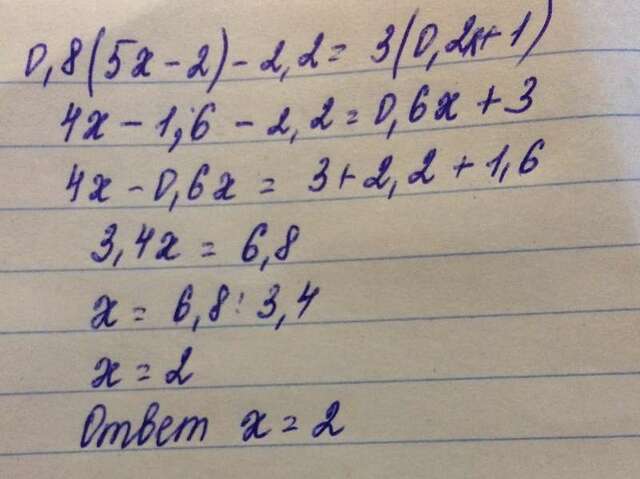 0,8(5x-2)-2,2=3(0,2x+1)
4x-1,6-2,2=0,6x+3
4x-0,6x=3+2,2+1,6
3,4x=6,8
x=6,8:3,4
x=2
Ответ x=2